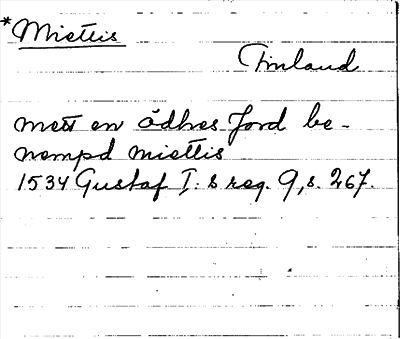 *Miettis
Finland
mett en ödhes Jord be-
nempd miettis
1534 Gustaf I:s reg. 9, s. 267.